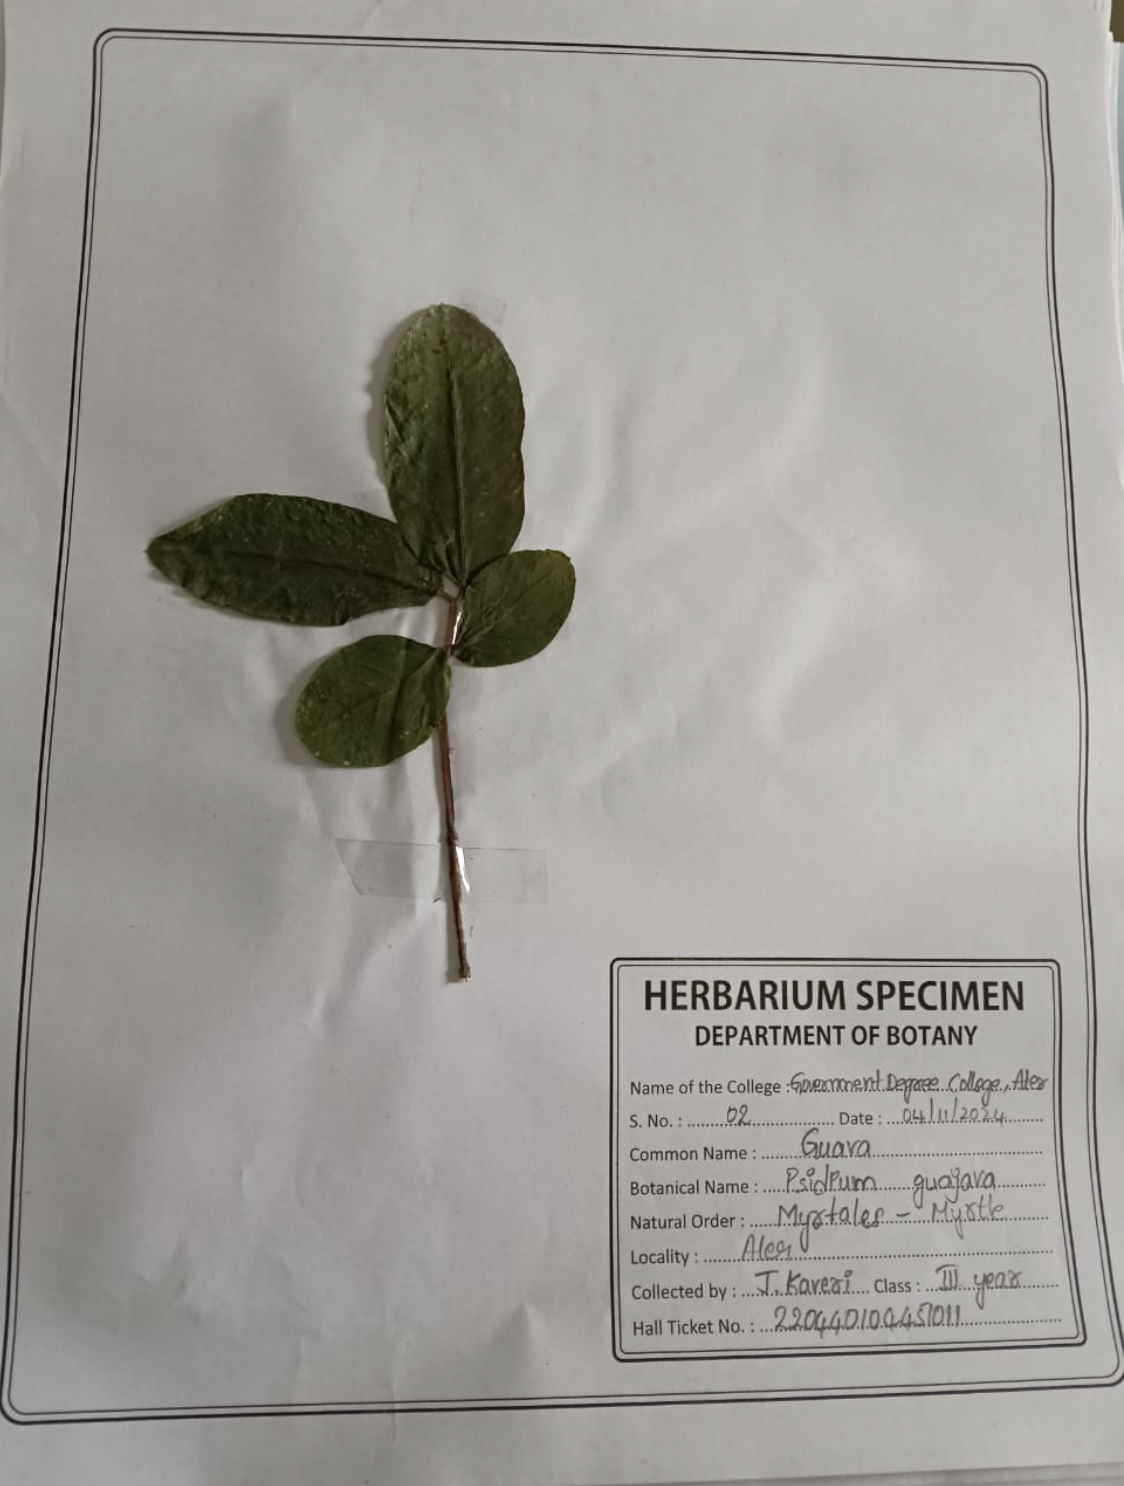 HERBARIUM SPECIMEN
DEPARTMENT OF BOTANY
Name of the College : Government Degree College, Aler
S. No. : 02 Date : 04/11/2024
Common Name : Guava
Botanical Name : Psidium guajava
Natural Order : Myrtales - Myrtle
Locality : Aler
Collected by : J. Kaveri Class : III year
Hall Ticket No. : 220440104451011